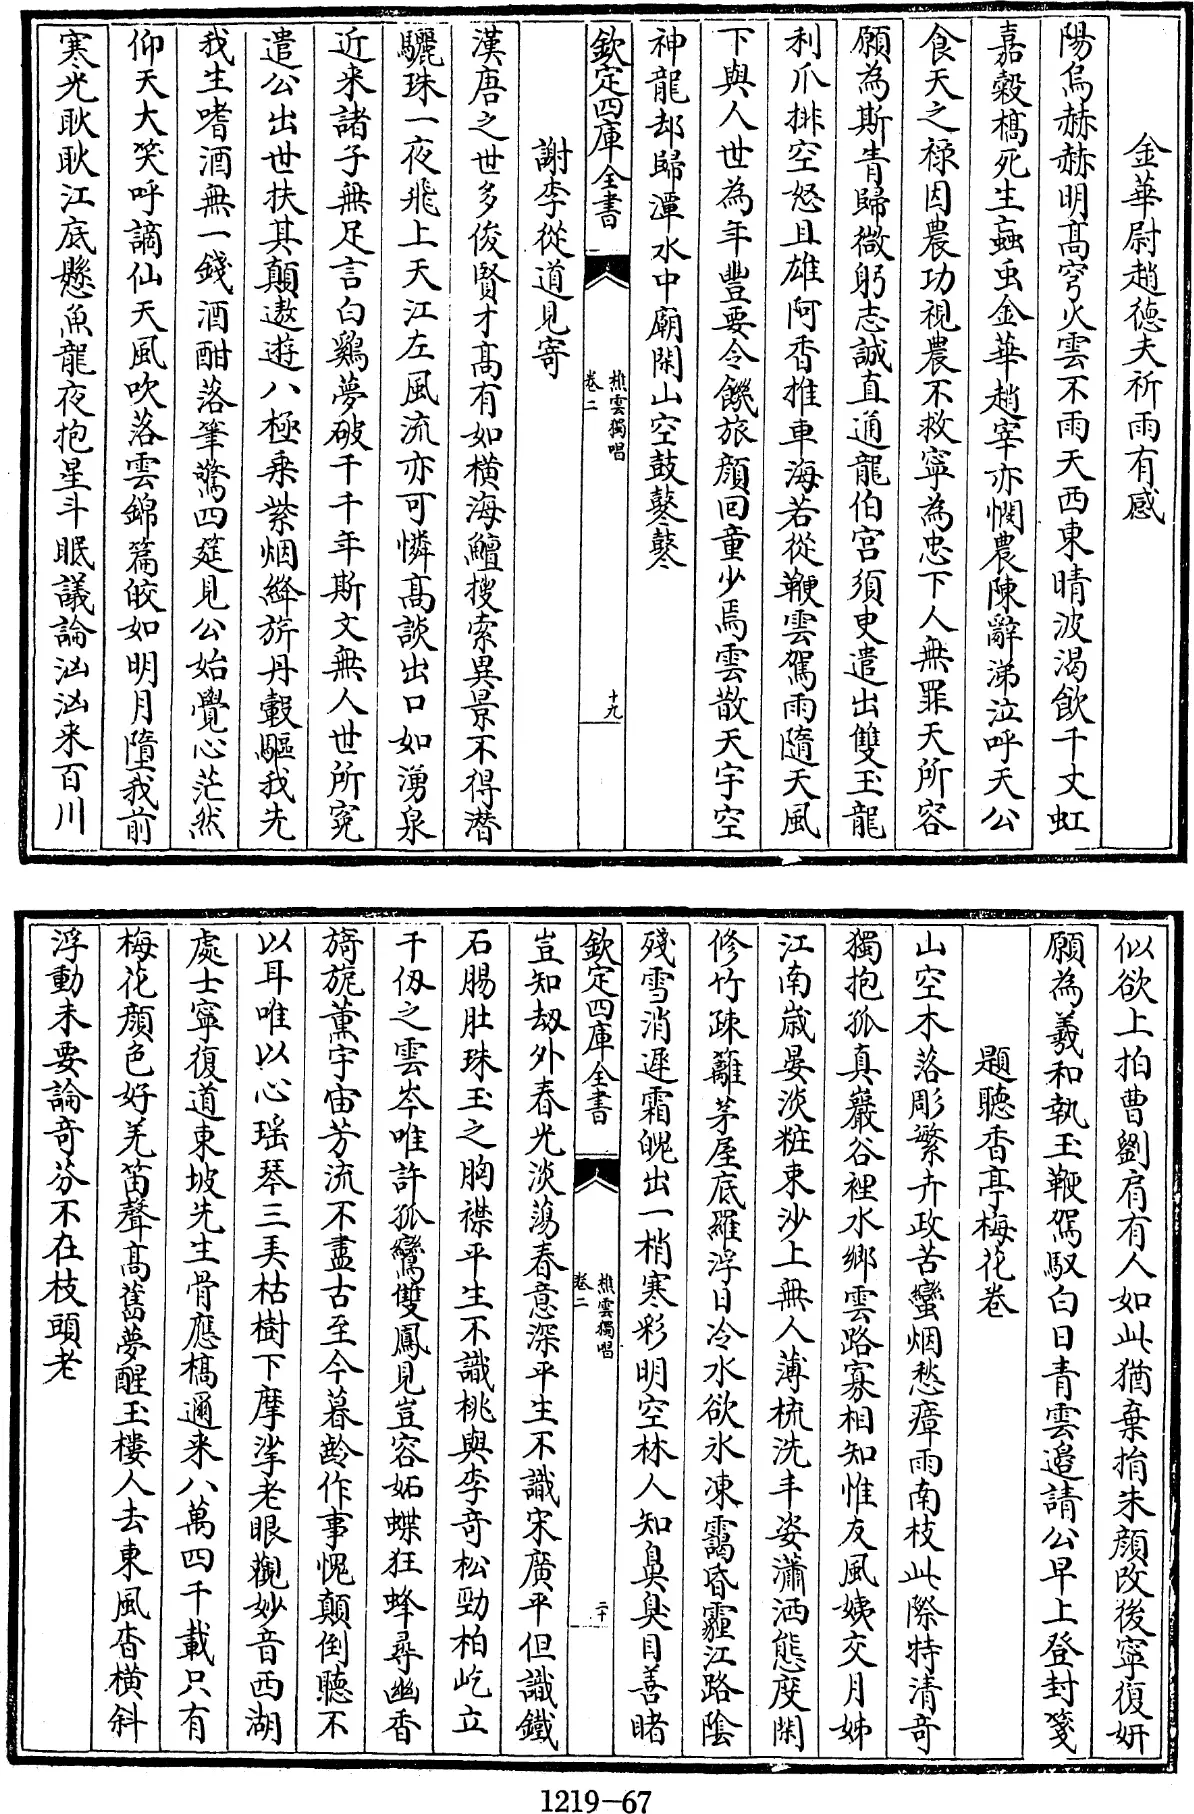 金華尉趙徳夫祈雨有感
陽烏赫赫明髙穹火雲不雨天西東晴波渇飲千丈虹
嘉穀槁死生蝨虫金華趙宰亦憫農陳辭涕泣呼天公
食天之禄因農功視農不救寧為忠下人無罪天所容
願為斯青歸微躬志誠直通龍伯宫須臾遣出雙玉龍
利爪排空怒且雄阿香推車海若從鞭雲駕雨隨天風
下與人世為年豐要令饑旅顔回童少焉雲散天宇空
神龍却歸潭水中廟閑山空鼓鼕鼕
欽定四庫全書
樵雲獨唱
卷二
十九
謝李從道見寄
漢唐之世多俊賢才髙有如横海鱣搜索異景不得潜
驪珠一夜飛上天江左風流亦可憐髙談出口如湧泉
近来諸子無足言白鷄夢破千千年斯文無人世所寃
遣公出世扶其顛遨遊八極乗紫烟絳旂丹轂驅我先
我生嗜酒無一錢酒酣落筆驚四筵見公始覺心茫然
仰天大笑呼謫仙天風吹落雲錦篇皎如明月墮我前
寒光耿耿江底懸魚龍夜抱星斗眠議論汹汹来百川
似欲上拍曹劉肩有人如此猶棄捐朱顔改後寧復妍
願為羲和執玉鞭駕馭白日青雲邉請公早上登封箋
題聽香亭梅花卷
山空木落彫繁卉政苦蠻烟愁瘴雨南枝此際特清竒
獨抱孤真巖谷裡水鄉雲路寡相知惟友風姨交月姊
江南歳晏淡粧束沙上無人薄梳洗丰姿瀟洒態度閑
修竹疎籬茅屋底羅浮日冷水欲氷凍靄昏霾江路隂
殘雪消遲霜皅出一梢寒彩明空林人知鼻臭目善睹
欽定四庫全書
樵雲獨唱
卷二
二十
豈知刼外春光淡蕩春意深平生不識宋廣平但識鐵
石腸肚珠玉之胸襟平生不識桃與李竒松勁柏屹立
千仭之雲岑唯許孤鸞雙鳳見豈容妬蝶狂蜂尋幽香
旖旎薫宇宙芳流不盡古至今暮齡作事愧顛倒聽不
以耳唯以心瑶琴三弄枯樹下摩挲老眼觀妙音西湖
處士寧復道東坡先生骨應槁邇来八萬四千載只有
梅花顔色好羌笛聲髙舊夢醒玉樓人去東風杳横斜
浮動未要論竒芬不在枝頭老
1219-67